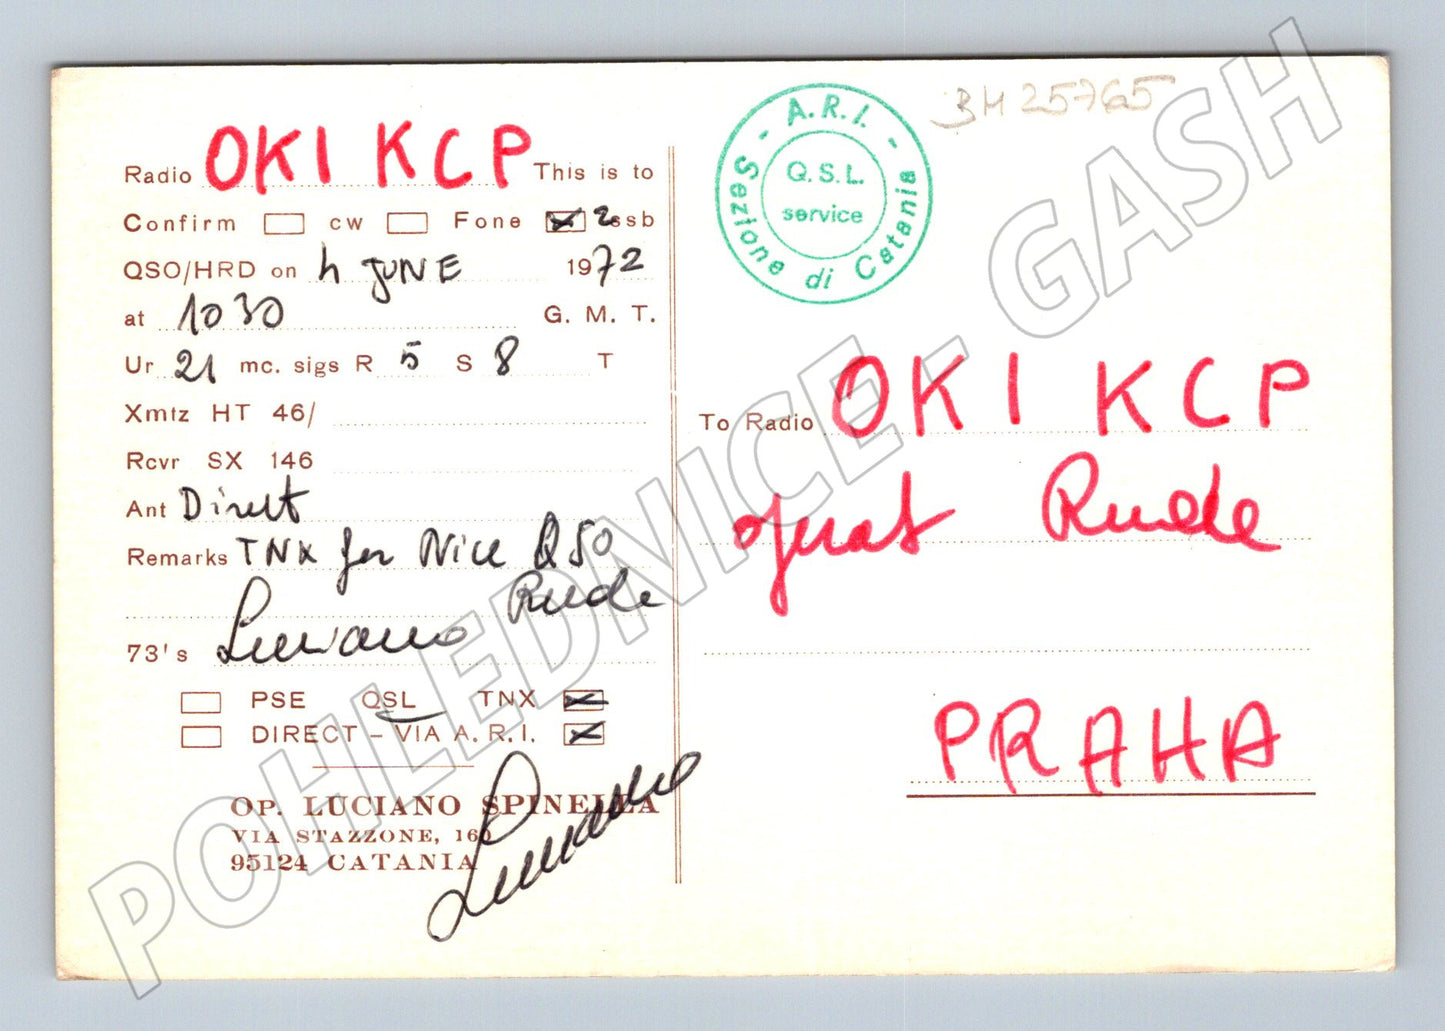 Radio OK1 KCP This is to
Confirm cw Fone 2 ssb
QSO/HRD on 4 JUNE 1972
at 1030 G. M. T.
Ur 21 mc. sigs R 5 S 8 T
Xmtz HT 46/
Rcvr SX 146
Ant Direct
Remarks TNX for Nice QSO
Rude
73's Luciano
PSE QSL TNX
DIRECT - VIA A. R. I.
OP. LUCIANO SPINELLA
VIA STAZZONE, 160
95124 CATANIA
Luciano
- A.R.I. -
Sezione di Catania
Q. S. L.
service
BH 25765
To Radio OK1 KCP
Rude
PRAHA
POHLEDNICE - GASH